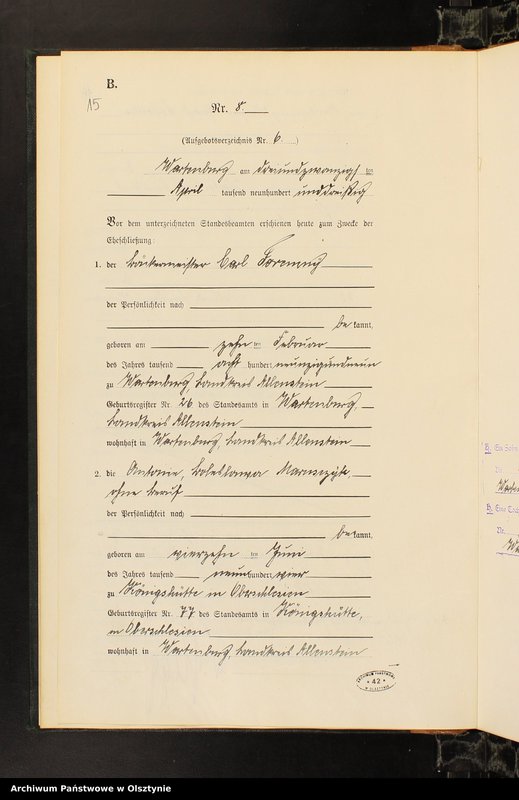 B.
15
Nr. 8.
(Aufgebotsverzeichnis Nr. 6.)
Wartenburg am dreiundzwanzigsten
April tausend neunhundert unddreißig
Vor dem unterzeichneten Standesbeamten erschienen heute zum Zwecke der
Eheschließung:
1. der Bäckermeister Carl
der Persönlichkeit nach
be kannt,
geboren am zehn ten Februar
des Jahres tausend acht hundert neunzigundneun
zu Wartenburg, Landkreis Allenstein
Geburtsregister Nr. 26 des Standesamts in Wartenburg,
Landkreis Allenstein
wohnhaft in Wartenburg, Landkreis Allenstein
2. die Antonie, Boleslawa
ohne Beruf
der Persönlichkeit nach
be kannt,
geboren am vierzehn ten Juni
des Jahres tausend neun hundert vier
zu Königshütte in Oberschlesien
Geburtsregister Nr. 77 des Standesamts in Königshütte,
in Oberschlesien
wohnhaft in Wartenburg, Landkreis Allenstein
ARCHIWUM PAŃSTWOWE
* 42 *
W OLSZTYNIE
B. Ein Sohn
Nr.
Archiwum Państwowe w Olsztynie